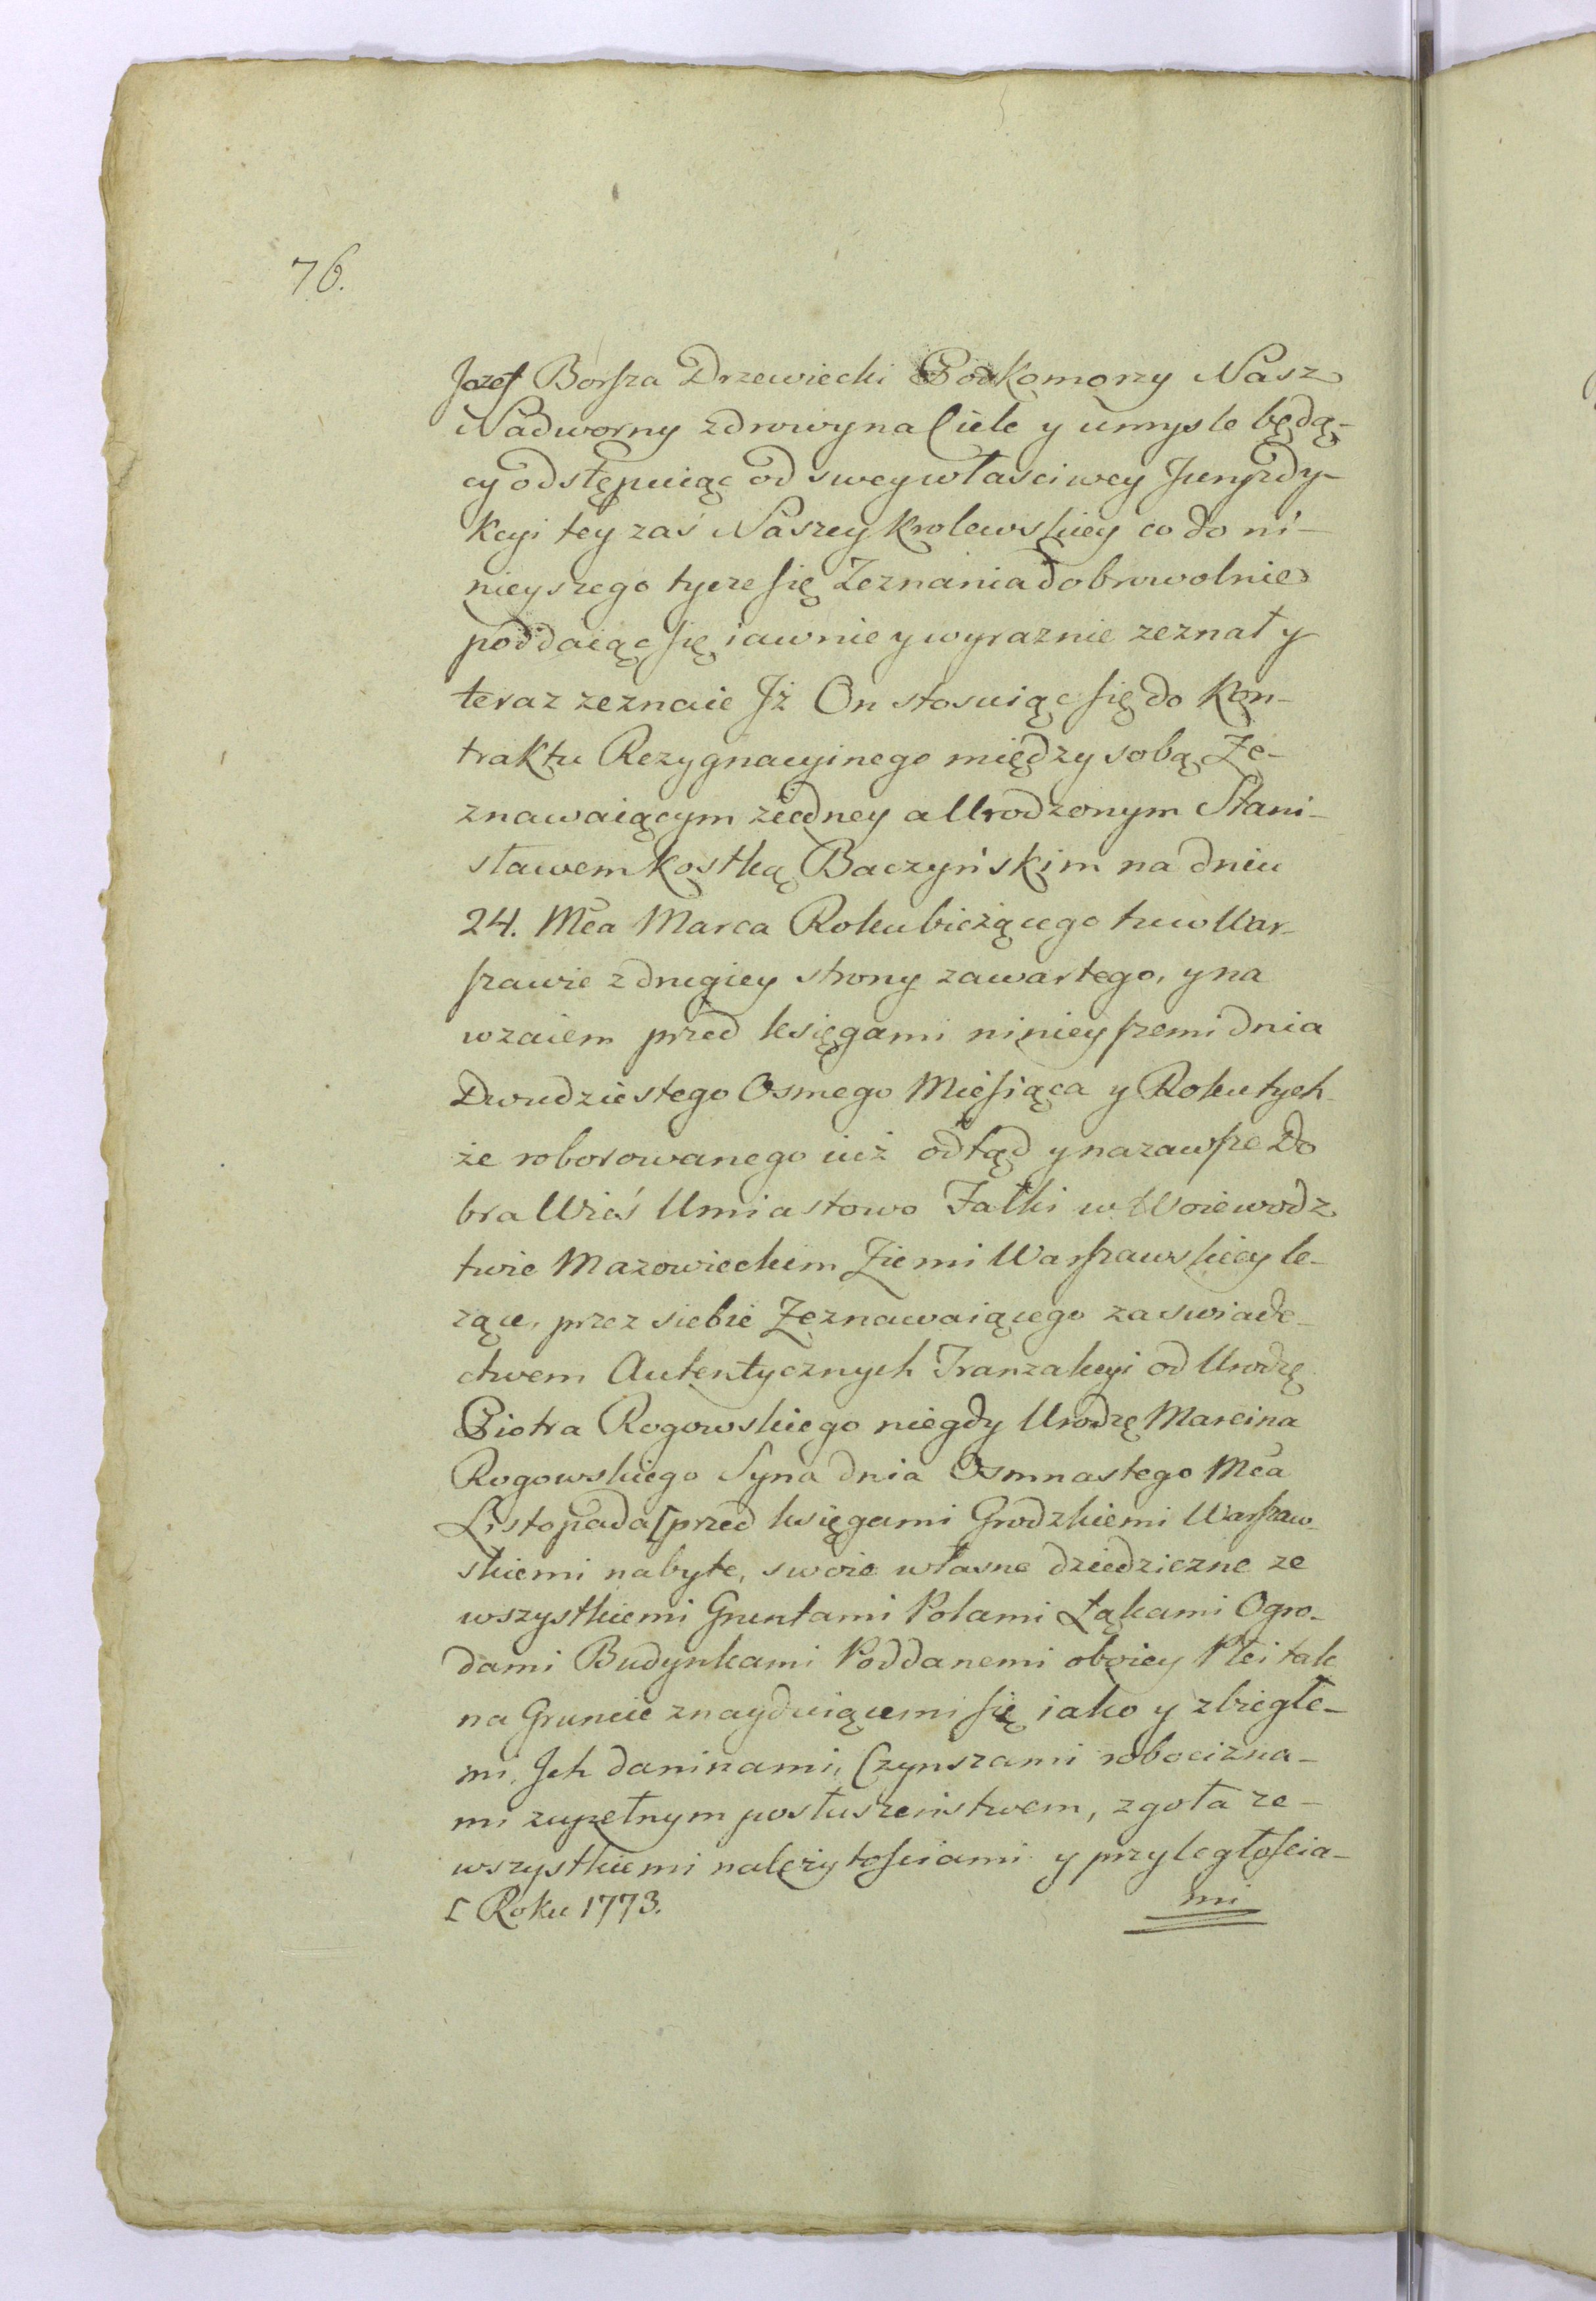 76.
Jozef Borsza Drzewiecki Podkomorzy Nasz
Nadworny zdrowy na Ciele y umysle będą-
cy odstępuiąc od swey własciwey Juryzdy-
kcyi tey zaś Naszey Krolewskiey co do ni-
nieyszego tycze się Zeznania dobrowolnie
poddaiąc się iawnie y wyraznie zeznał y
teraz zeznaie Jż On stosuiąc się do Kon-
traktu Rezygnacyinego między sobą Ze-
znawaiącym ziedney a Urodzonym Stani-
sławem Kostką Baczyńskim na dniu
24. Mca Marca Roku bieżącego tu w War-
szawie z drugiey strony zawartego, y na
wzaiem przed księgami ninieyszemi dnia
Dwudziestego Osmego Miesiąca y Roku tych-
że roborowanego iuż odtąd y nazawsze Do
bra Wieś Umiastowo Fałki w Woiewodz
twie Mazowieckim Ziemi Warszawskiey le-
zące, przez siebie Zeznawaiącego za swiade-
ctwem Autentycznych Tranzakcyi od Urodzę
Piotra Rogowskiego niegdy Urodzę Marcina
Rogowskiego Syna dnia Osmnastego Mca
Listopada [ przed księgami Grodzkiemi Warszaw-
skiemi nabyte, swoie własne dziedziczne ze
wszystkiemi Gruntami Polami Łąkami Ogro-
dami Budynkami Poddanemi oboiey Płci tak
na Gruncie znayduiącemi się iako y zbiegłe-
mi, Jch daninami, Czynszami robocizna-
mi zupełnym posłuszeństwem, zgoła ze-
wszystkiemi należytościami y przyległościa-
[ Roku 1773. mi